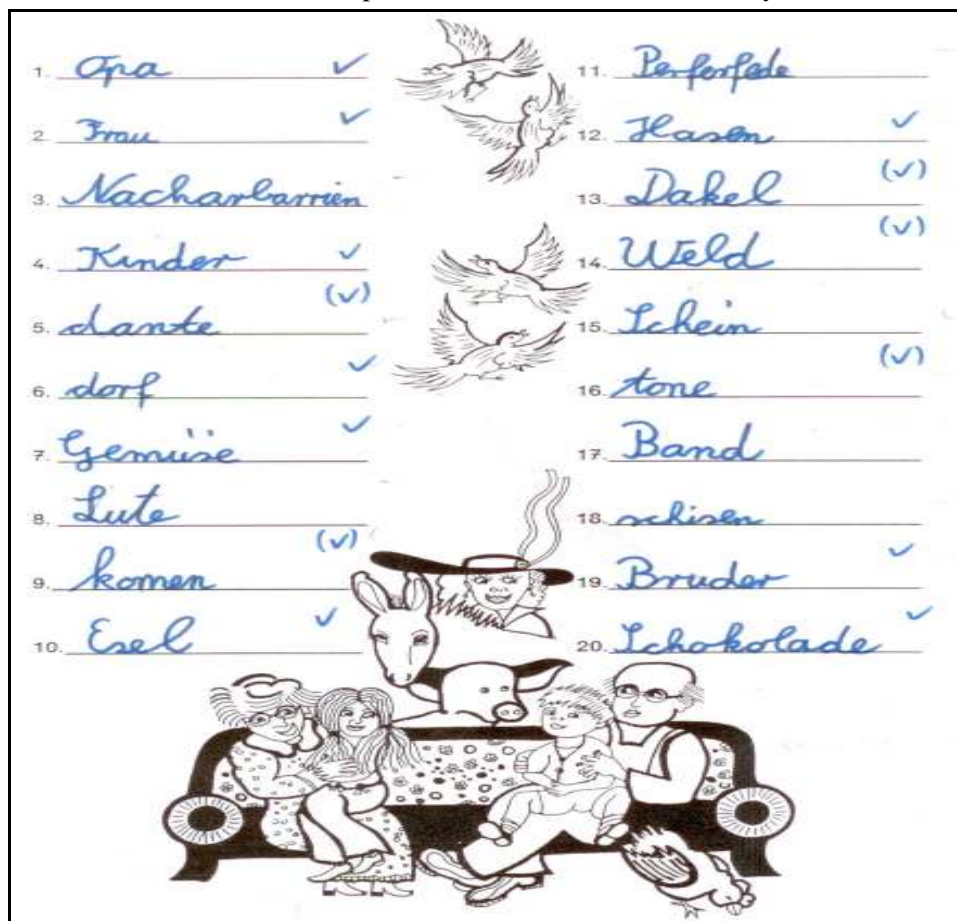 1. Opa ✓
2. Frau ✓
3. Nacharbarrien
4. Kinder ✓
5. dante (✓)
6. dorf ✓
7. Gemüse ✓
8. Lute
9. komen (✓)
10. Esel ✓
11. Perferfede
12. Hasen ✓
13. Dakel (✓)
14. Weld (✓)
15. Schein
16. tone (✓)
17. Band
18. schisen
19. Bruder ✓
20. Schokolade ✓